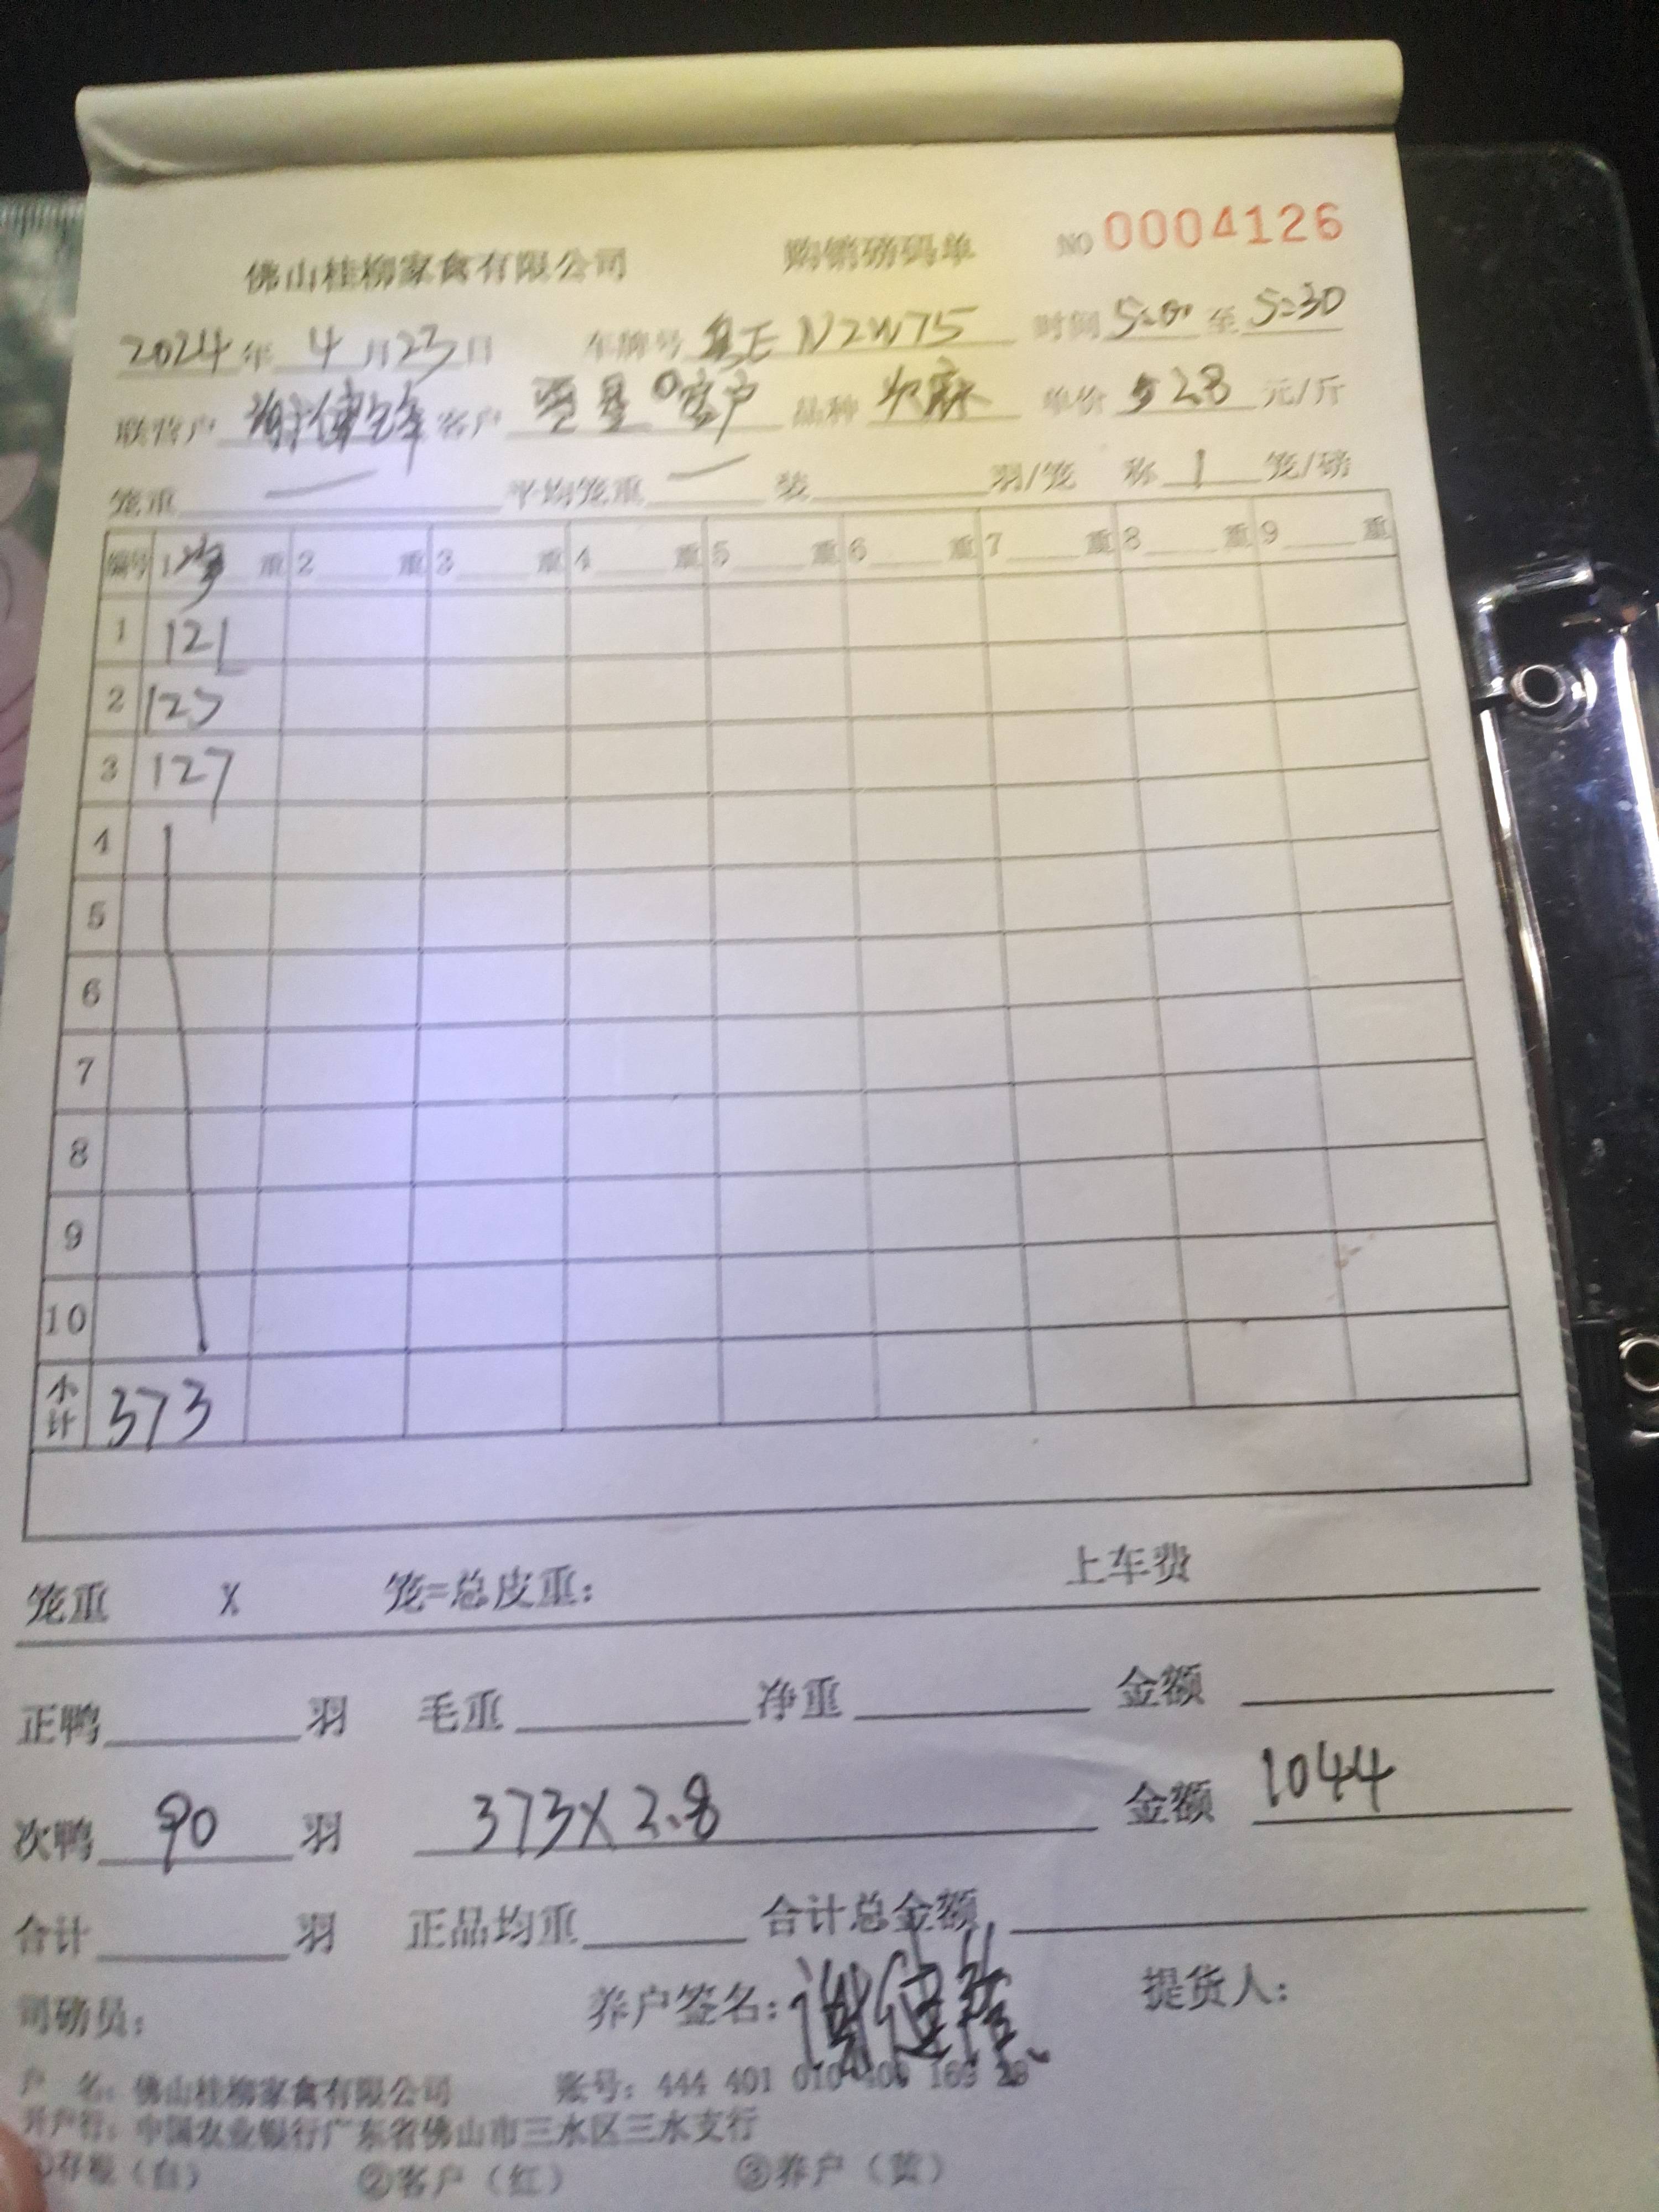 佛山桂柳家禽有限公司 购销磅码单 NO 0004126
2024年 4月23日 车牌号 粤E N2W75 时间 5:00 至 5:30
联营户 谢健锋 客户 客户 品种 次麻 单价 2.8 元/斤
笼重 一 平均笼重 一 装 羽/笼 称 1 笼/磅
编号 1 重 2 重 3 重 4 重 5 重 6 重 7 重 8 重 9 重
1 121
2 125
3 127
4
5
6
7
8
9
10
小计 373
笼重 X 笼=总皮重: 上车费
正鸭 羽 毛重 净重 金额
次鸭 90 羽 373X2.8 金额 1044
合计 羽 正品均重 合计总金额
司磅员: 养户签名: 谢健锋 提货人:
户 名: 佛山桂柳家禽有限公司 账号: 444 401 010 400 169 28
开户行: 中国农业银行广东省佛山市三水区三水支行
①存根（白） ②客户（红） ③养户（黄）